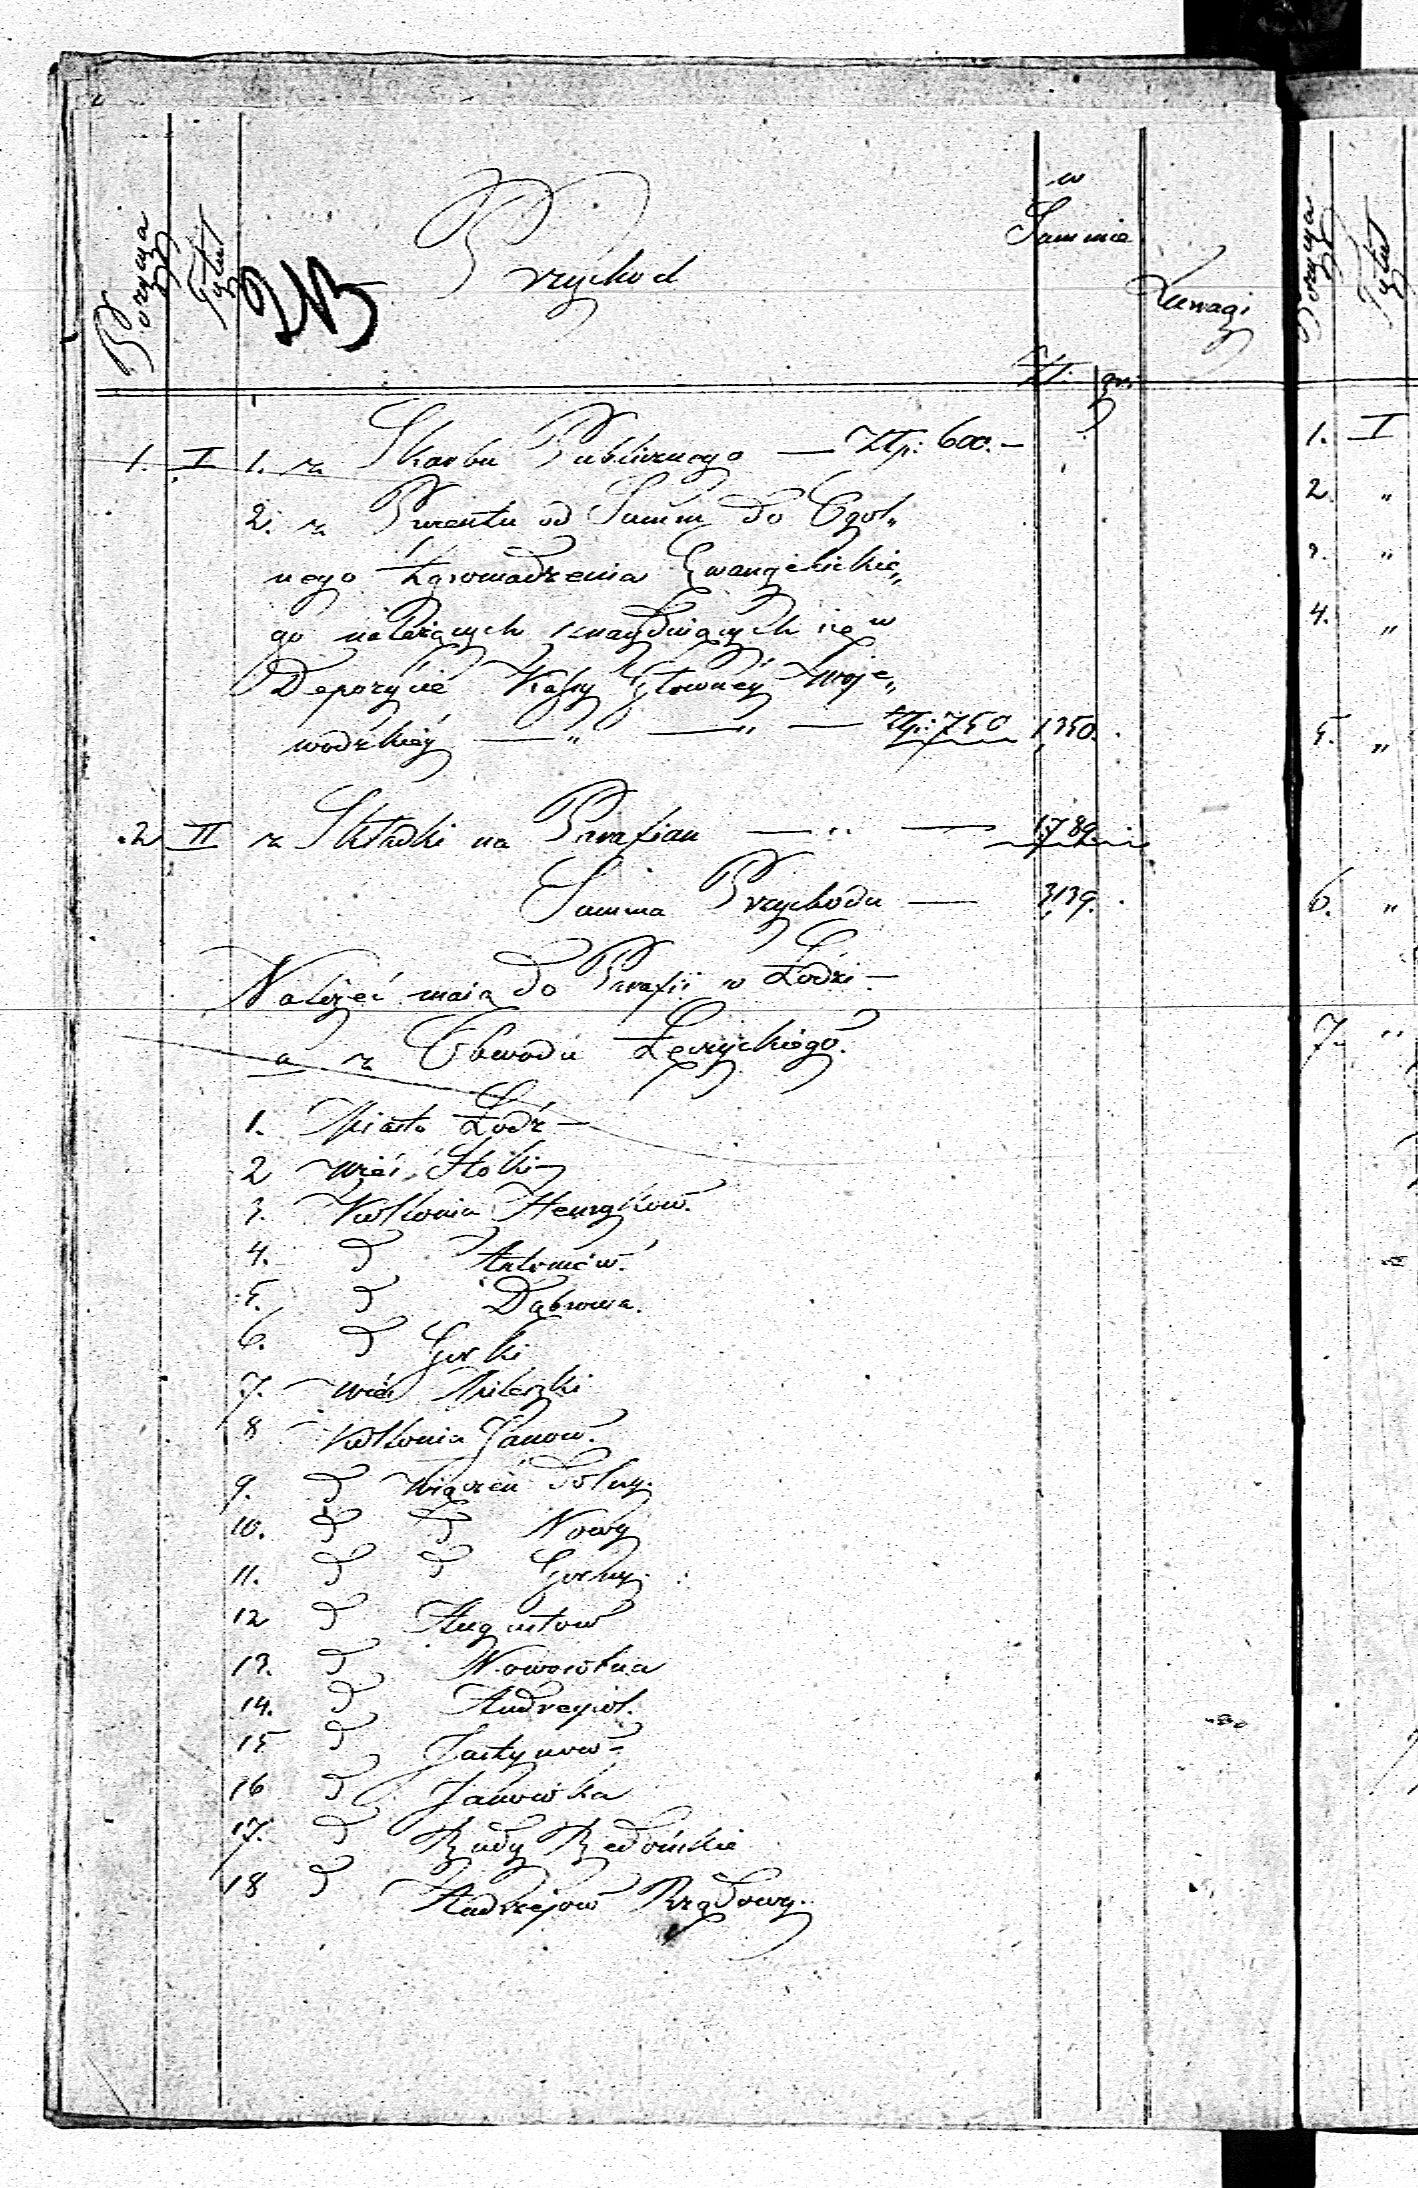 Pozycya
Tytuł
213
Przychod
w
Summie
Uwagi
Złt. gr.
1. I 1. z Skarbu Publicznego — Złp: 600. —
2. z Procentu od Summ do Ogol„
nego Zgromadzenia Ewangelickie„
go należących znaydujących się w
Depozycie Kassy Głowney Woje„
wodzkiéy — „ — „ — Złp: 750 1350.
2 II z Składki na Parafian — „ — 1789
Summa Przychodu — 3139.
Należeć maią do Parafii w Łodzi —
a z Obwodu Łęczyckiego.
1. Miasto Łodź —
2 Wieś Stoki
3. Kollonia Henrykow.
4. d Antoniów.
5. d Dąbrowa.
6. d Gorki
7. Wieś Mileszki
8 Kollonia Janow.
9. d Wiączeń Dolny.
10. d d Nowy
11. d d Gorny.
12 d Augustow
13. d Nowosolna
14. d Andrespol.
15 d Justynow
16 d Janowka
17. d Budy Bedońskie
18 d Andrzejow Rządowy.
Pozycya
Tytuł
1. I
2. „
3. „
4. „
5. „
6. „
7. „